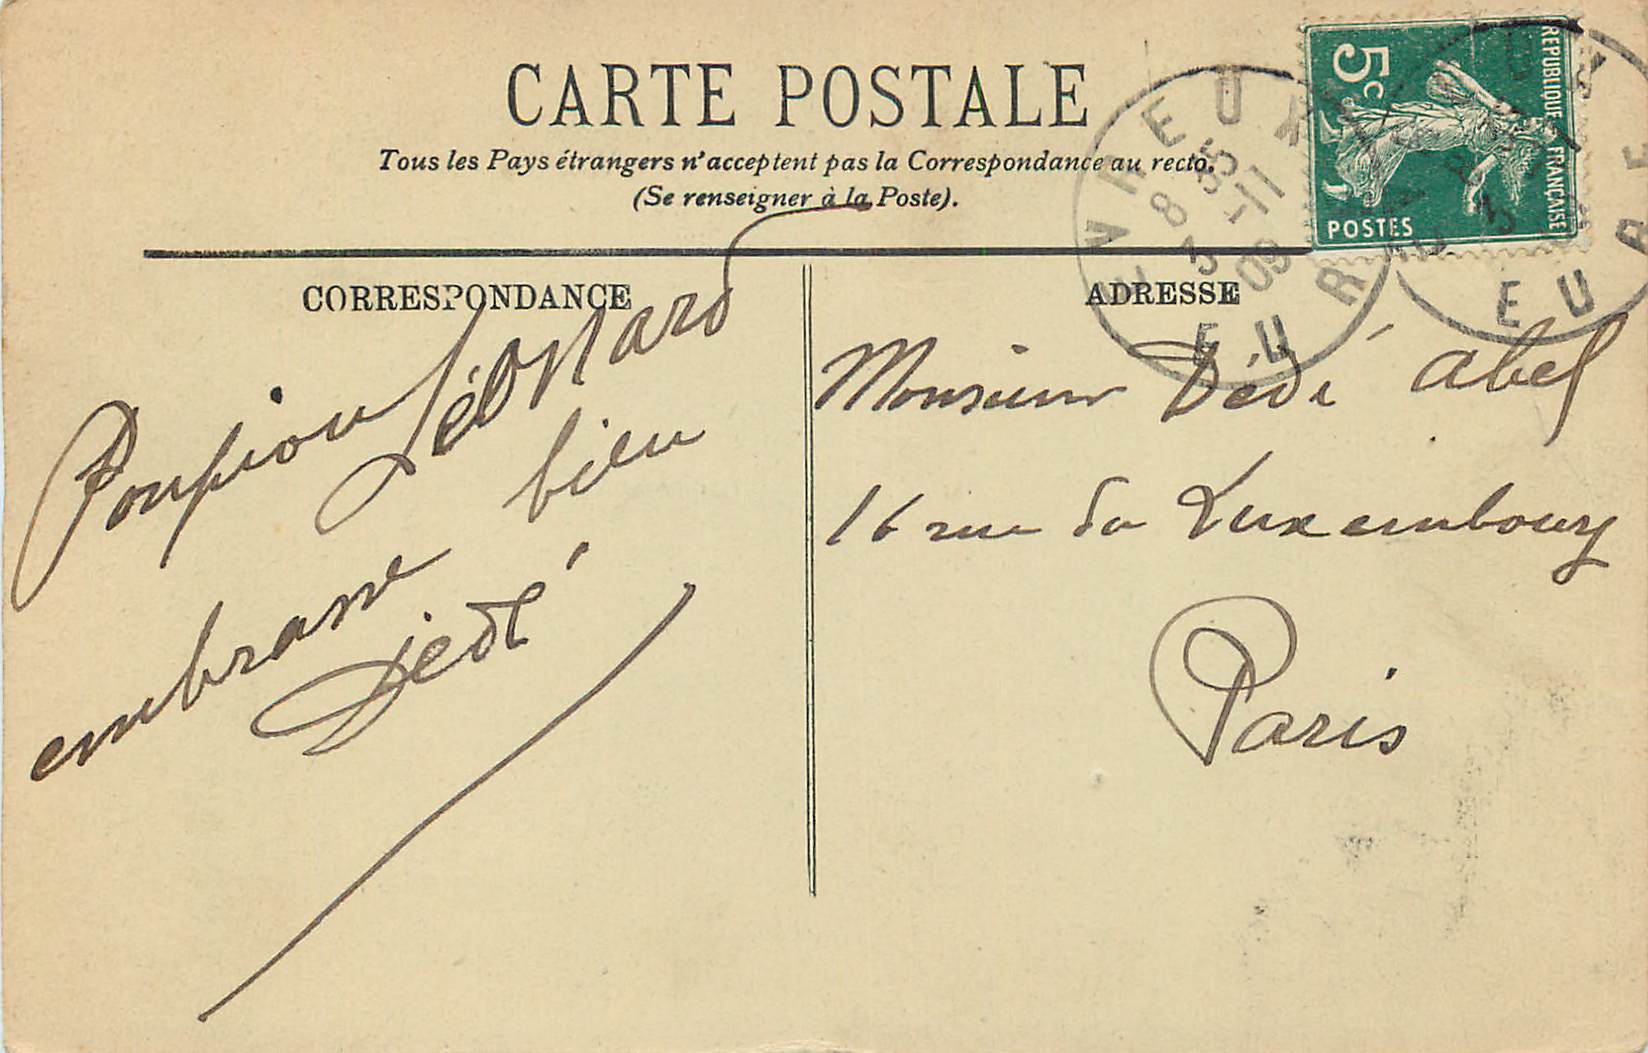 CARTE POSTALE
Tous les Pays étrangers n'acceptent pas la Correspondance au recto.
(Se renseigner à la Poste).
CORRESPONDANCE
Poupiou Léonard
embrasse bien
Dédé
ADRESSE
Monsieur Dédé Abel
16 rue du Luxembourg
Paris
5c
REPUBLIQUE FRANÇAISE
POSTES
EVREUX
8 35
3 -11
09
EURE
EURE